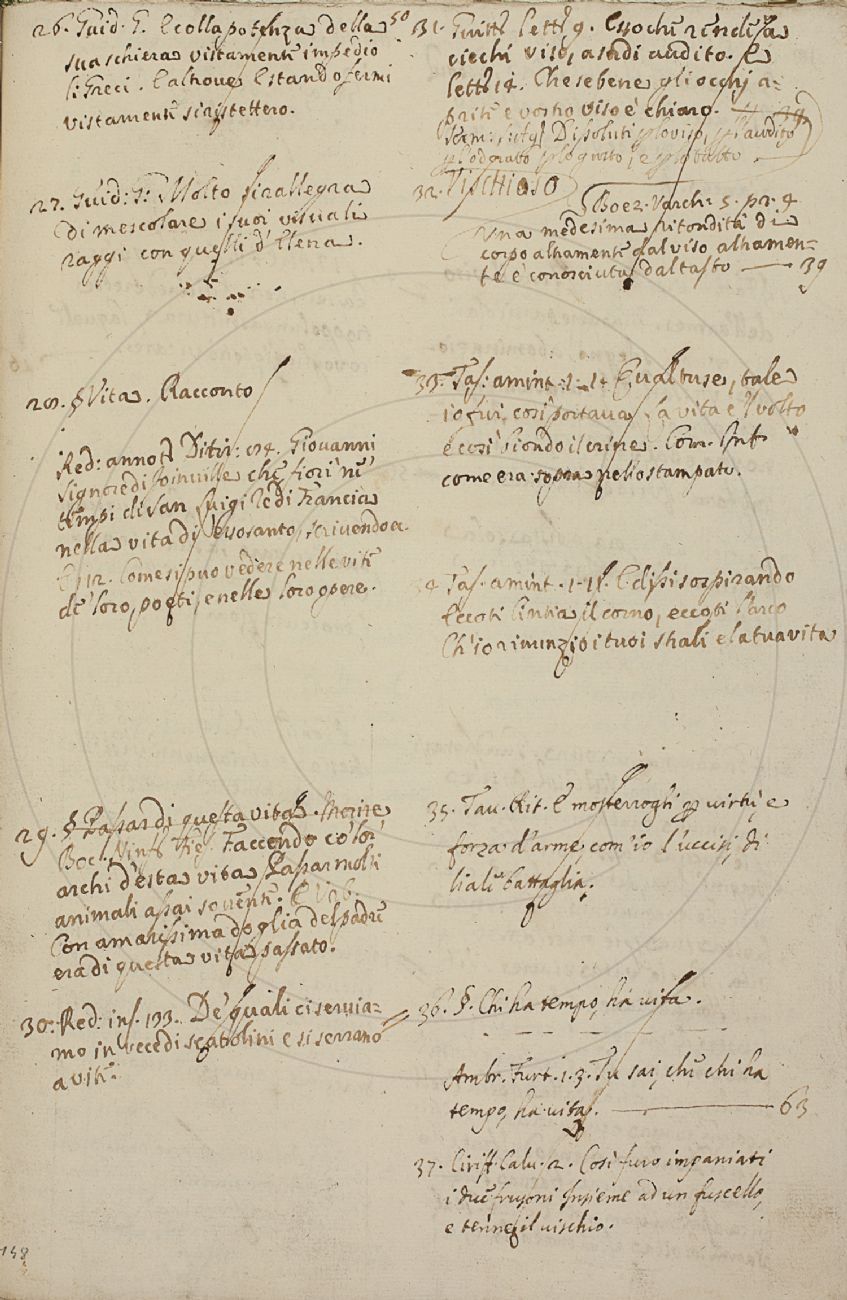 26. Guid. G. E colla potenza della
sua schiera vistamente impedío
li Greci. E altrove Estando fermi
vistamente si ristettero.
27. Guid: G: Molto si rallegra
di mescolare i suoi visuali
raggi con quelli d'Elena.
28. § Vita. Racconto
Red: annot Ditir: 124. Giovanni
signore di Joinville che fiorì ne'
tempi di San Luigi Re di Francia
nella vita di esso santo, scrivendo ec.
E 112. Come si può vedere nelle vite
de' loro, poeti, e nelle loro opere.
29. § Passar di questa vita. Morire
Bocc. Ninf. Fies. Faccendo co' lor'
archi d'esta vita Passar molti
animali assai sovente. E Urb.
Con amarissima doglia del padre
era di questa vita passato.
30. Red: ins. 133. De' quali ci servia=
mo in vece di scatolini e si serrano
a vite.
50
31. Guitt. lett. 9. Esso che rende sa
ciechi viso, a sordi audito. E
lett. 14. Che se bene gli occhj a=
priti e vostro viso è chiaro.
Dissoluti p lo viso, p l'audito
p l'odorato p lo gusto, e p lo tatto
32. Vischioso
Boez. Varch: 5. pr. 4
Una medesima ritondità di
corpo altramente dal viso altramen=
te è conosciuta dal tasto — 39
33. Tas: amint. 1. 1. E qual tu se', tale
io fui, così portava La vita e 'l volto
e così biondo il crine. Com. Inf.
come era sopra nello stampato.
34 Tas. amint. 1. 1. E dissi sospirando
Eccoti Cintia il corno, eccoti l'arco
Ch'io rinunzio i tuoi strali e la tua vita
35. Tav. Rit. E mosterrogli p virtù, e
forza d'arme, com'io l'uccisi, di
liale battaglia.
36. §. Chi ha tempo, ha vita.
Ambr. Furt. 1. 3. Tu sai, che chi ha
tempo, ha vita. — 63
37. Ciriff. Calv. 2. Così furo impaniati
i due frusoni Insieme ad un fuscello,
e tenne il vischio.
158